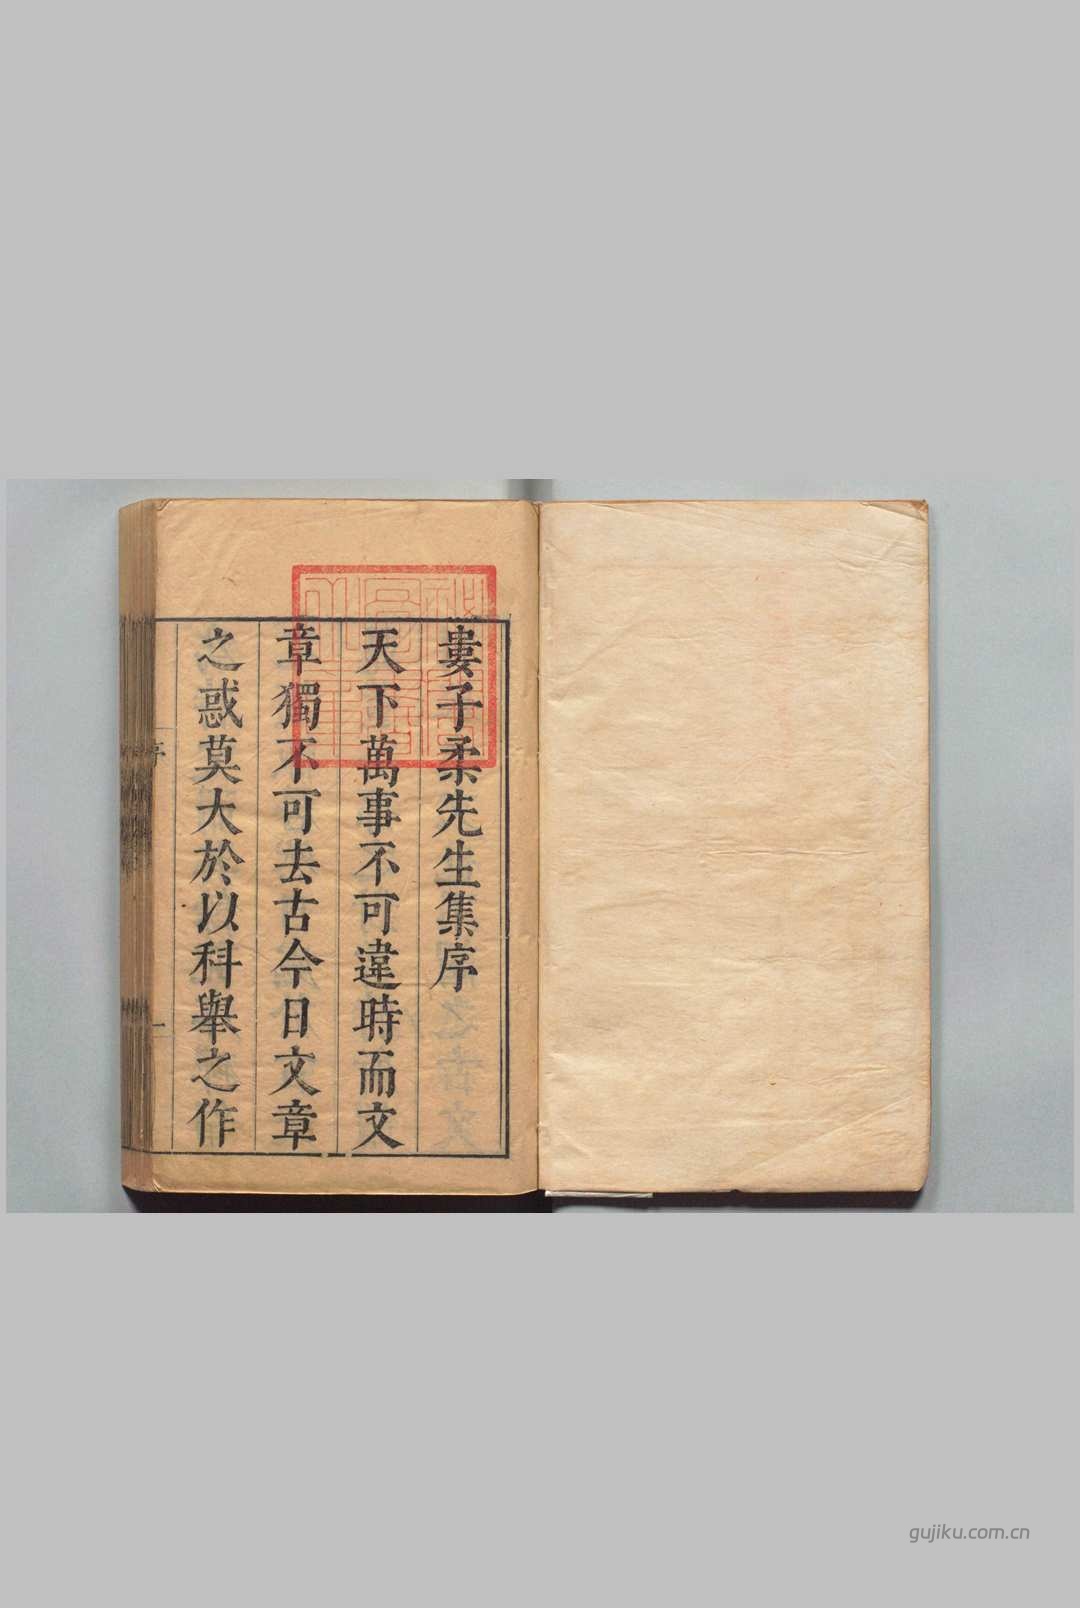 婁子柔先生集序
天下萬事不可違時而文
章獨不可去古今日文章
之惑莫大於以科舉之作
序
gujiku.com.cn